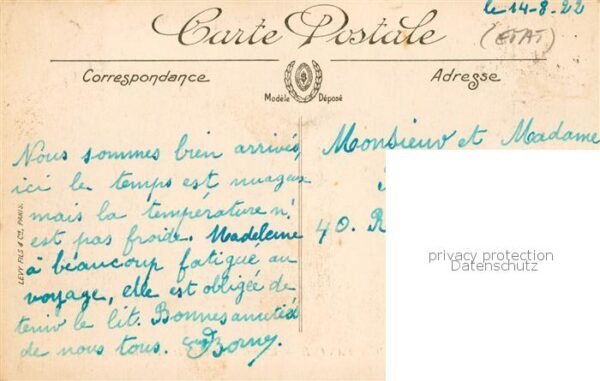 le 14-8-22
Carte Postale
(ETAT)
Correspondance
Adresse
Modèle Déposé
Nous sommes bien arrivés,
ici le temps est nuageux
mais la température n'
est pas froide. Madeleine
à beaucoup fatigué au
voyage, elle est obligée de
tenir le lit. Bonnes amitiés
de nous tous.
LEVY FILS & Cie, PARIS.
Monsieur et Madame
40. R
privacy protection
Datenschutz